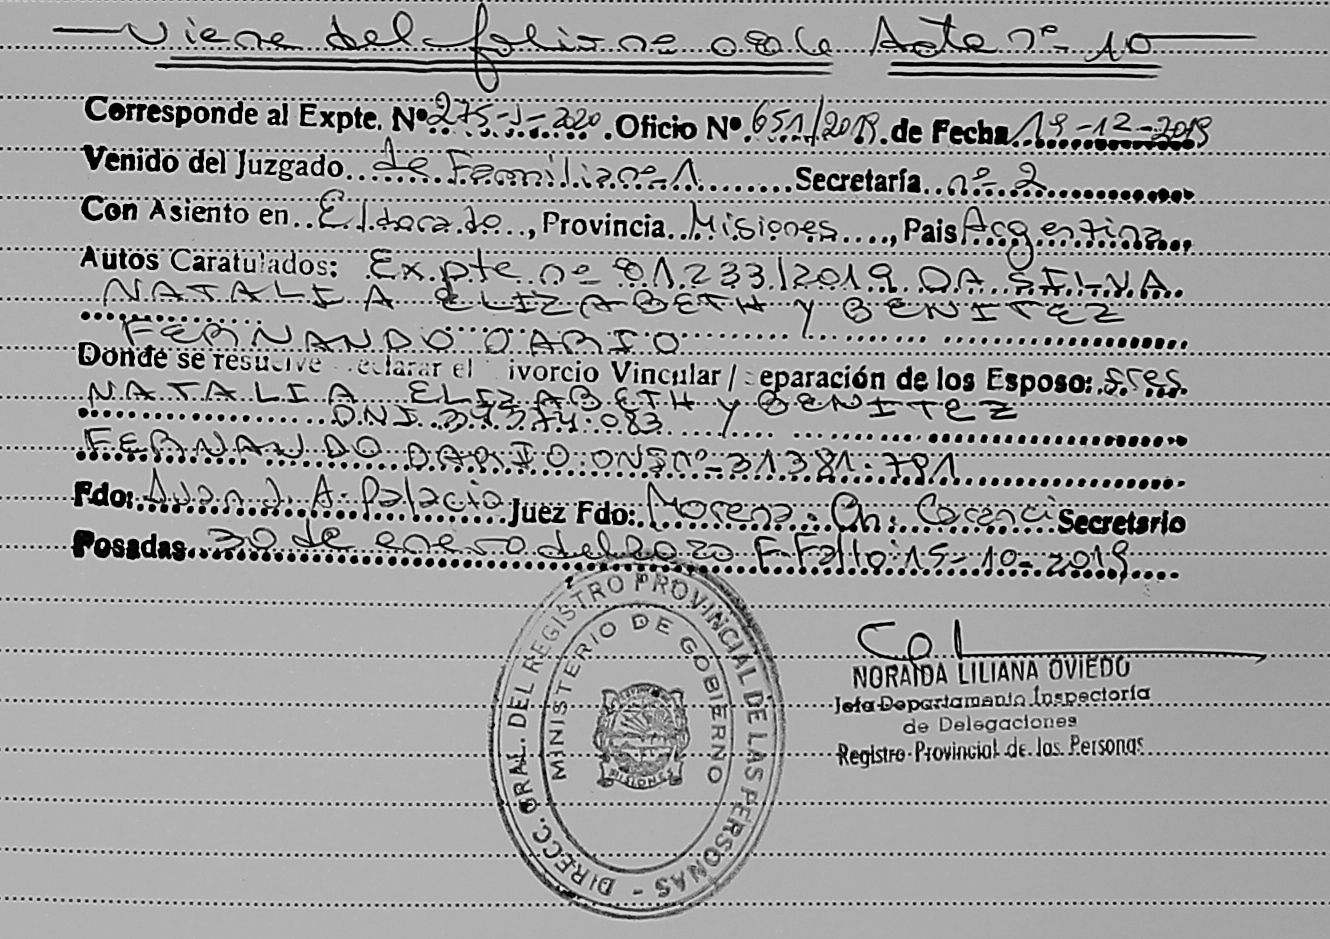 Viene del folio nº Acta nº 10
Corresponde al Expte. Nº 275-J-2020. Oficio Nº 651/2019. de Fecha 19-12-2019
Venido del Juzgado de Familia nº 1 Secretaría nº 2
Con Asiento en Eldorado, Provincia Misiones, Pais Argentina
Autos Caratulados: Expte nº 81.233/2019 DA SILVA
NATALIA ELIZABETH Y BENITEZ
FERNANDO DARIO
Donde se resuelve eclarar el ivorcio Vincular / eparación de los Esposo: Sres.
NATALIA ELIZABETH Y BENITEZ
DNI
FERNANDO DARIO DNI nº 31.381.781
Fdo: Juan J. A. Palacio Juez Fdo: Morena Secretario
Posadas 30 de enero del 2020 F. Fallo: 15-10-2019
DIRECC. GRAL. DEL REGISTRO PROVINCIAL DE LAS PERSONAS -
MINISTERIO DE GOBIERNO
MISIONES
NORAIDA LILIANA OVIEDO
Jefa Departamento Inspectoría
de Delegaciones
Registro Provincial de las Personas